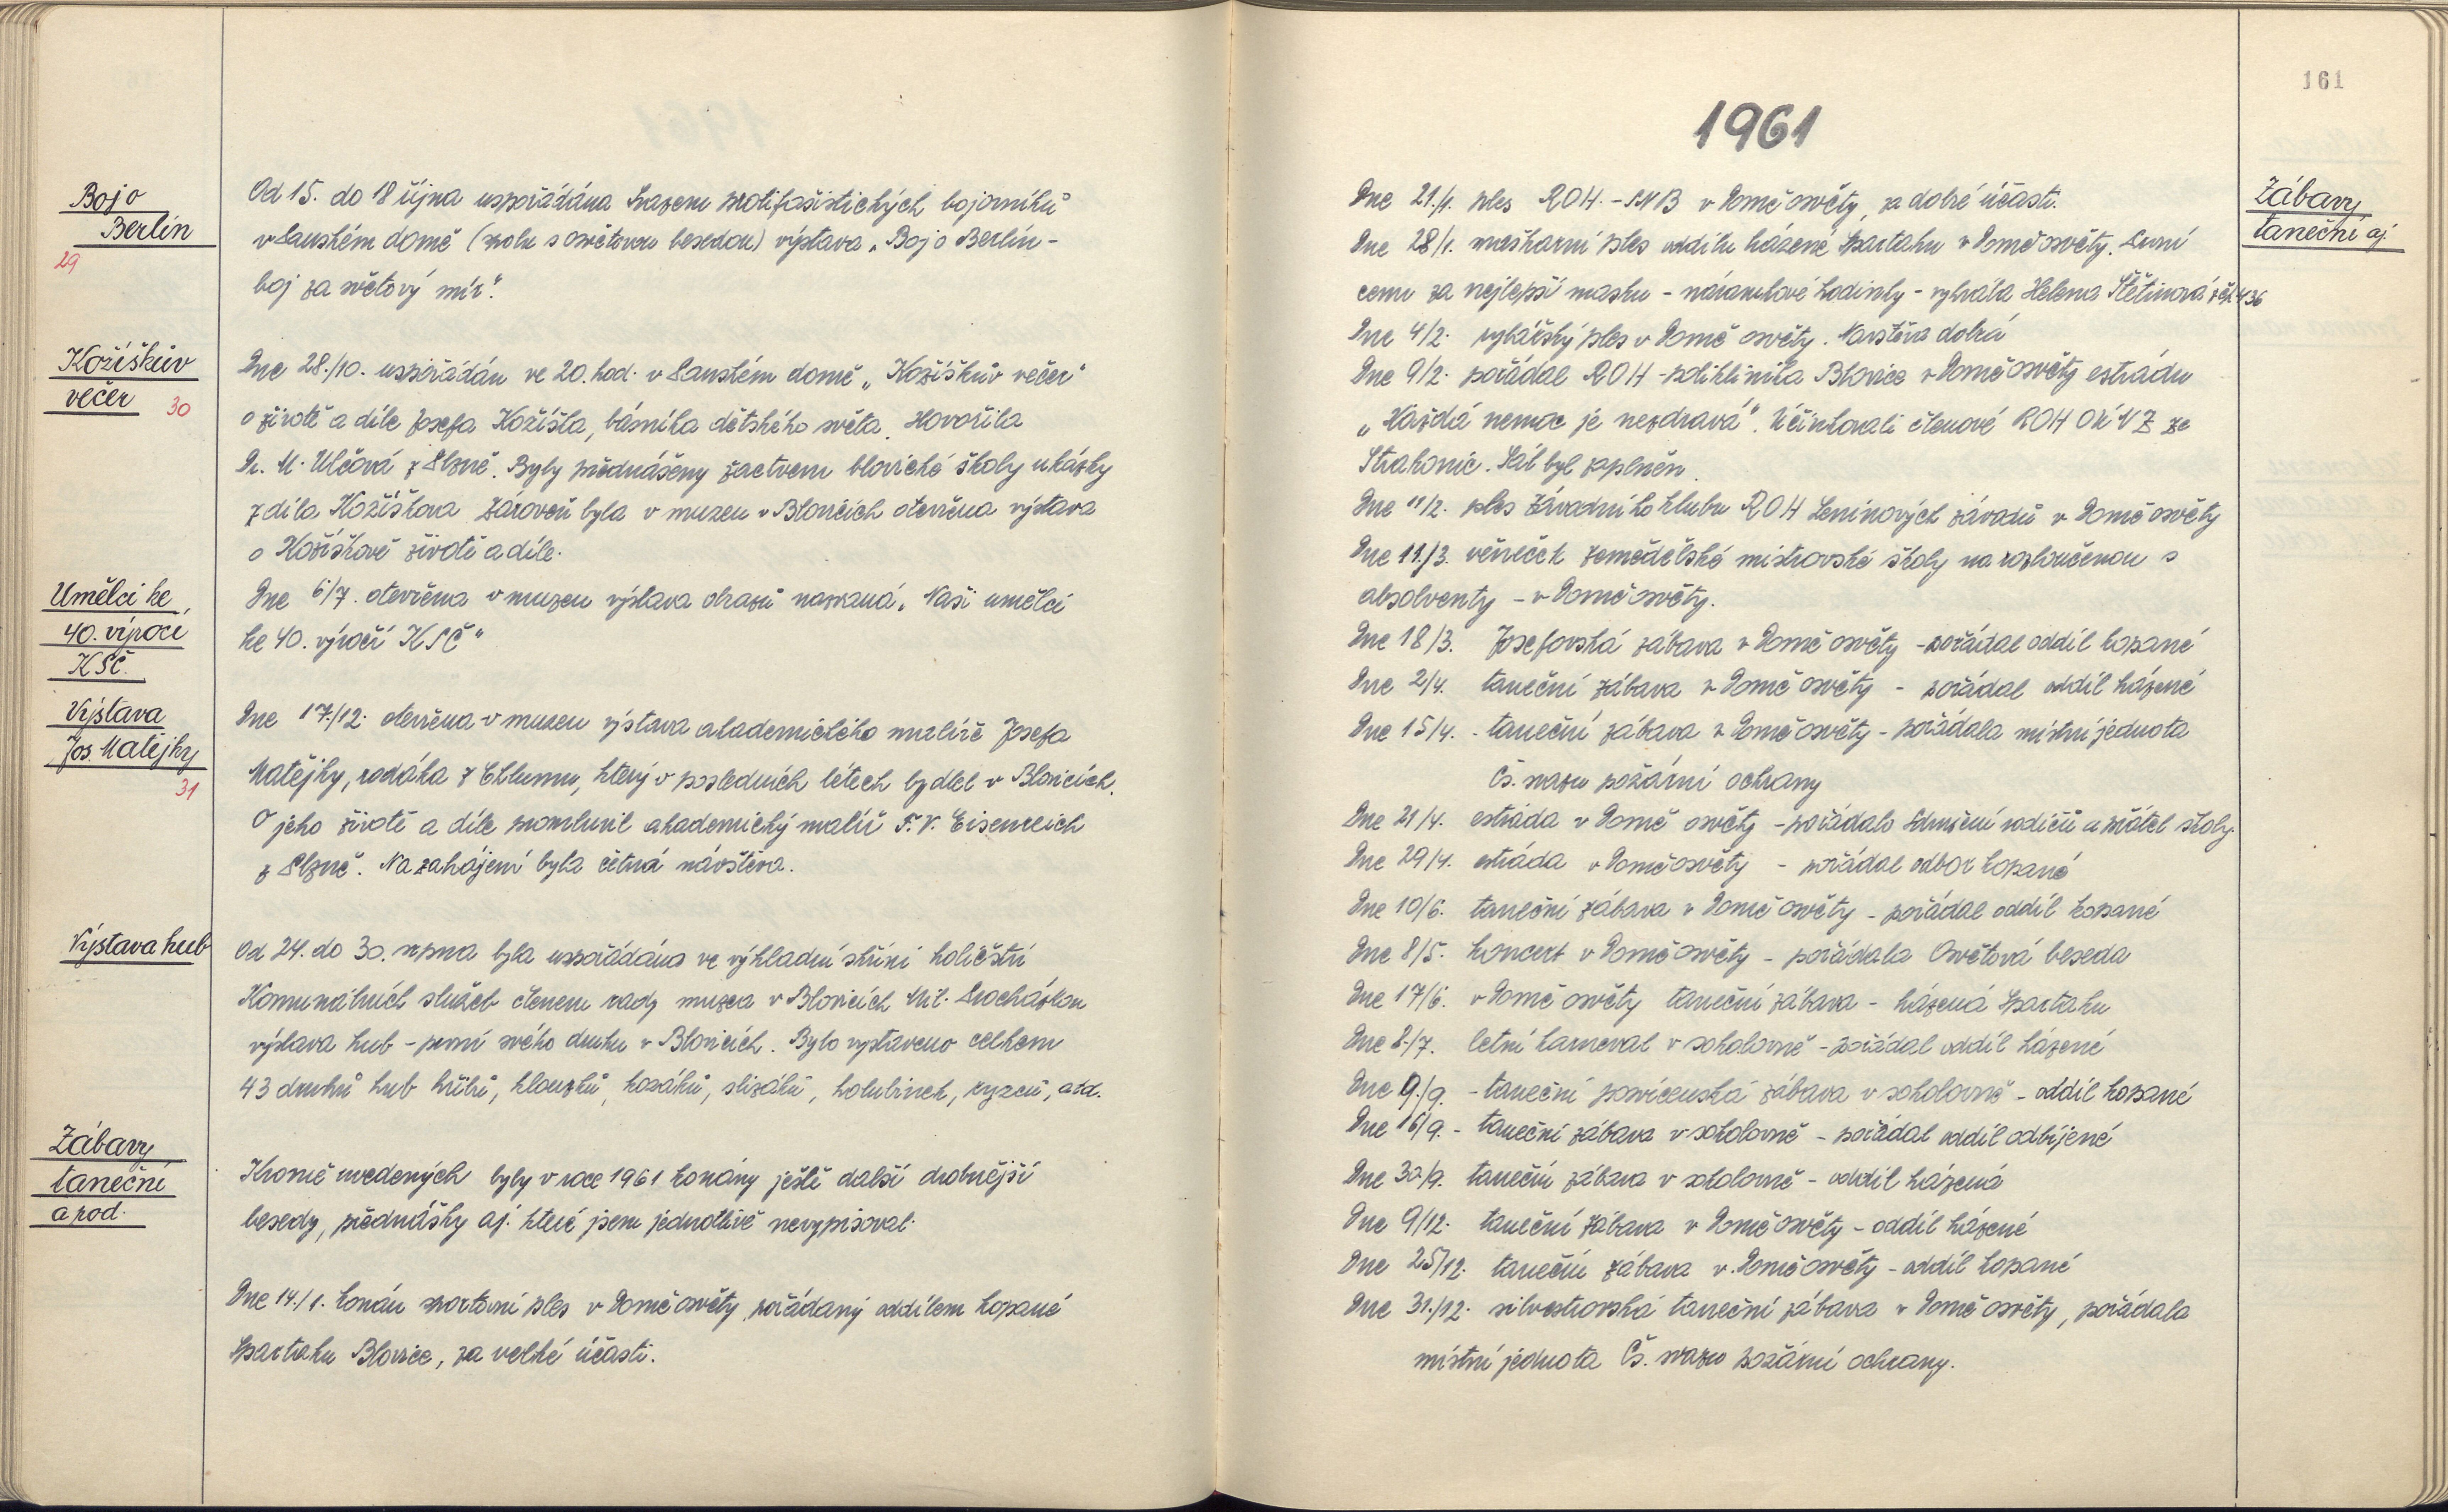 Boj o
Berlín
29
Od 15. do 18 října uspořádána Svazem protifašistických bojovníků
v Panském domě (spolu s osvětovou besedou) výstava „Boj o Berlín -
boj za světový mír".
Kožíškův
večer 30
Dne 28./10. uspořádán ve 20. hod. v Panském domě „Kožíškův večer"
o životě a díle Josefa Kožíška, básníka dětského světa. Hovořila
Dr. M. Ulčová z Plzně. Byly přednášeny žactvem blovické školy ukázky
z díla Kožíškova. Zároveň byla v muzeu v Blovicích otevřena výstava
o Kožíškově životě a díle.
Umělci ke
40. výročí
KSČ.
Dne 6/7. otevřena v muzeu výstava obrazů nazvaná „Naši umělci
ke 40. výročí KSČ"
Výstava
Jos. Matějky
31
Dne 17./12. otevřena v muzeu výstava akademického malíře Josefa
Matějky, rodáka z Chlumu, který v posledních létech bydlel v Blovicích.
O jeho životě a díle promluvil akademický malíř F. V. Eisenreich
z Plzně. Na zahájení byla četná návštěva.
Výstava hub
Od 24. do 30. srpna byla uspořádána ve výhladní skříni holičství
Komunálních služeb členem rady muzea v Blovicích Mil. Procházkou
výstava hub - první svého druhu v Blovicích. Bylo vystaveno celkem
43 druhů hub hřibů, klouzků, kozáků, slizáků, holubinek, ryzců, atd.
Zábavy
taneční
a pod.
Kromě uvedených byly v roce 1961 konány ještě další drobnější
besedy, přednášky aj. které jsem jednotlivě nevypisoval.
Dne 14./1. konán sportovní ples v Domě osvěty, pořádaný oddílem kopané
Spartaku Blovice, za velké účasti.
161
1961
Zábavy
taneční aj.
Dne 21./1. ples ROH. - SNB v Domě osvěty, za dobré účasti.
Dne 28/1. maškarní ples oddílu házené Spartaku v Domě osvěty. První
cenu za nejlepší masku - náramkové hodinky - vyhrála Helena Štětinová z čp. 436
Dne 4/2. rybářský ples v Domě osvěty. Navstěva dobrá
Dne 9/2. pořádal ROH - poliklinika Blovice v Domě osvěty estrádu
„Každá nemoc je nezdravá". Účinkovali členové ROH OÚNZ ze
Strakonic. Sál byl zaplněn.
Dne 11/2. ples Závodního klubu ROH Leninových závodů v Domě osvěty
Dne 11./3. věneček zemědělské mistrovské školy na rozloučenou s
absolventy - v Domě osvěty.
Dne 18/3. Josefovská zábava v Domě osvěty - pořádal oddíl kopané
Dne 2/4. taneční zábava v Domě osvěty - pořádal oddíl házené
Dne 15/4. - taneční zábava v Domě osvěty - pořádala místní jednota
Čs. svazu požární ochrany
Dne 21/4. estráda v Domě osvěty - pořádalo Sdružení rodičů a přátel školy.
Dne 29/4. estráda v Domě osvěty - pořádal odbor kopané
Dne 10/6. taneční zábava v Domě osvěty - pořádal oddíl kopané
Dne 8/5. koncert v Domě osvěty - pořádala Osvětová beseda
Dne 17/6. v Domě osvěty taneční zábava - házená Spartaku
Dne 8./7. letní karneval v sokolovně - pořádal oddíl házené
Dne 9./9. - taneční posvícenská zábava v sokolovně - oddíl kopané
Dne 16/9. - taneční zábava v sokolovně - pořádal oddíl odbíjené
Dne 30./9. taneční zábava v sokolovně - oddíl házená
Dne 9/12. taneční zábava v Domě osvěty - oddíl házené
Dne 25/12. taneční zábava v Domě osvěty - oddíl kopané
Dne 31./12. silvestrovská taneční zábava v Domě osvěty, pořádala
místní jednota Čs. svazu požární ochrany.